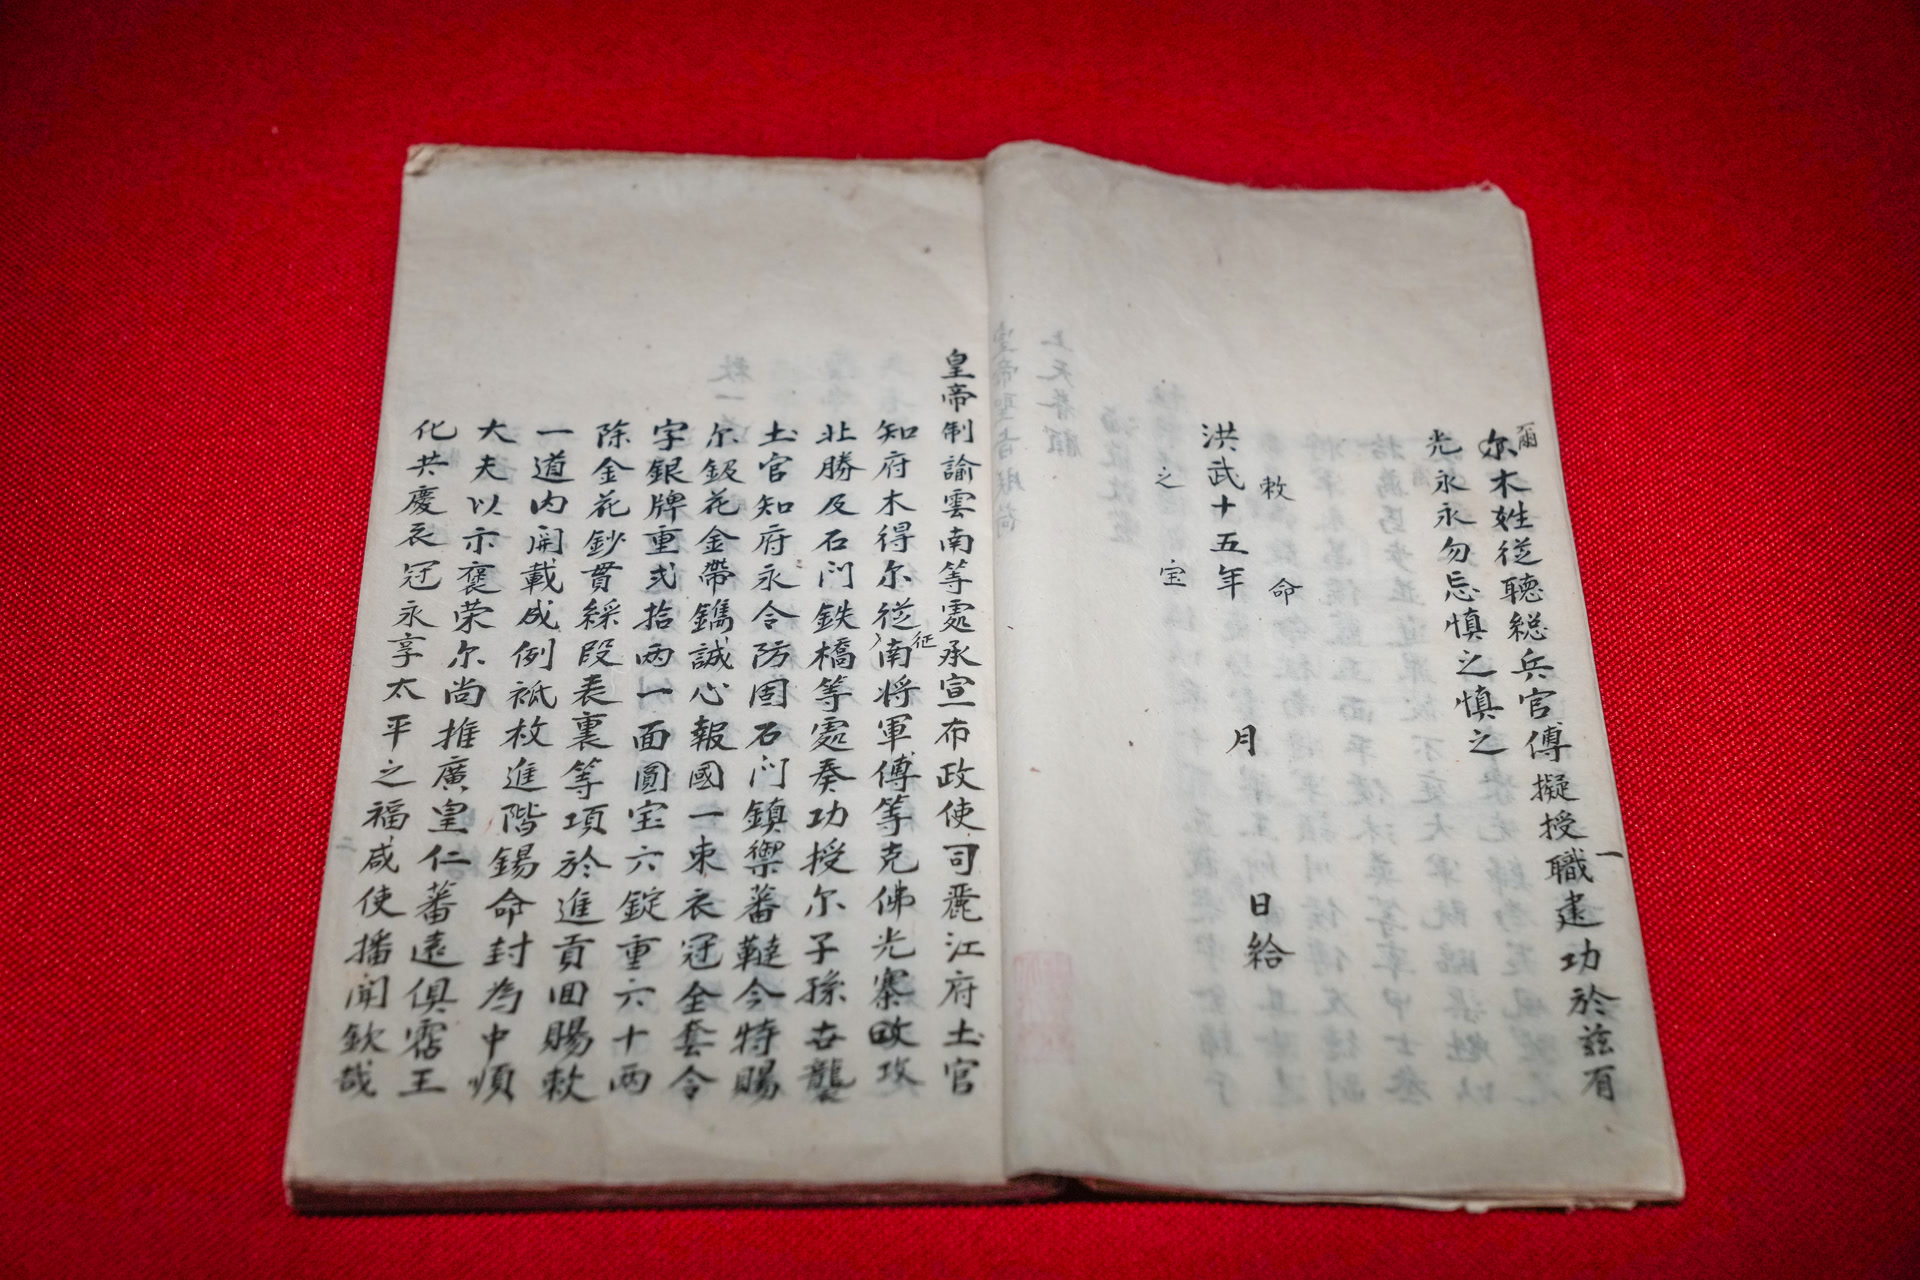 尔木姓従聴総兵官傅擬授職建功於兹有
爾
光永永勿忘慎之慎之
敕命
洪武十五年 月 日給
之宝
皇帝制諭雲南等處承宣布政使司麗江府土官
知府木得尔従南将軍傅等克佛光寨攻
征
北勝及石门鉄橋等處奏功授尔子孫世襲
土官知府永令防固石门鎮禦蕃韃今特賜
尔鈒花金帶鐫誠心報國一束衣冠全套令
字銀牌重弍拾两一面圓宝六錠重六十两
除金花鈔貫綵段表裏等項於進貢回賜敕
一道内開載成例祗枚進階錫命封為中順
大夫以示褒荣尔尚推廣皇仁蕃遠俱霑王
化共慶衣冠永享太平之福咸使播聞欽哉